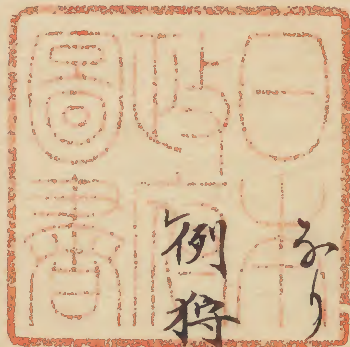 日本
政府
圖書
なり
例狩